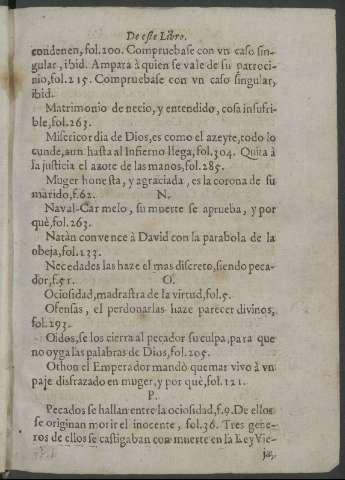 De este Libro.
condenen, fol. 200. Compruebase con vn caso sin-
gular, ibid. Ampara à quien se vale de su patroci-
nio, fol. 215. Compruebase con vn caso singular,
ibid.
Matrimonio de necio, y entendido, cosa insufri-
ble, fol. 263.
Misericordia de Dios, es como el azeyte, todo lo
cunde, aun hasta al Infierno llega, fol. 304. Quita à
la justicia el azote de las manos, fol. 285.
Muger honesta, y agraciada, es la corona de su
marido, f. 62. N.
Naval-Carmelo, su muerte se aprueba, y por
què, fol. 263.
Natàn convence à David con la parabola de la
obeja, fol. 133.
Necedades las haze el mas discreto, siendo peca-
dor, f. 51. O.
Ociosidad, madrastra de la virtud, fol. 5.
Ofensas, el perdonarlas haze parecer divinos,
fol. 293.
Oìdos, se los cierra al pecador su culpa, para que
no oyga las palabras de Dios, fol. 205.
Othon el Emperador mandò quemar vivo à vn
paje disfrazado en muger, y por què, fol. 121.
P.
Pecados se hallan entre la ociosidad, f. 9. De ellos
se originan morir el inocente, fol. 36. Tres gene-
ros de ellos se castigaban con muerte en la Ley Vie-
ja,